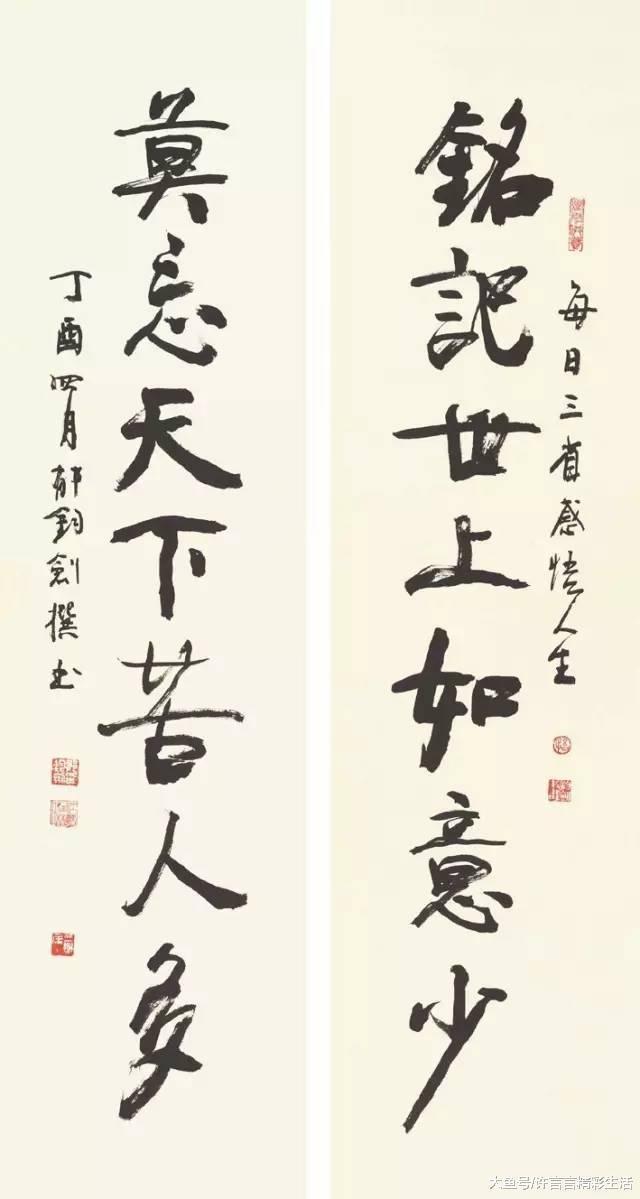 銘記世上如意少
每日三省感悟人生
莫忘天下苦人多
丁酉四月郁鈞劍撰书
大鱼号/许言言精彩生活